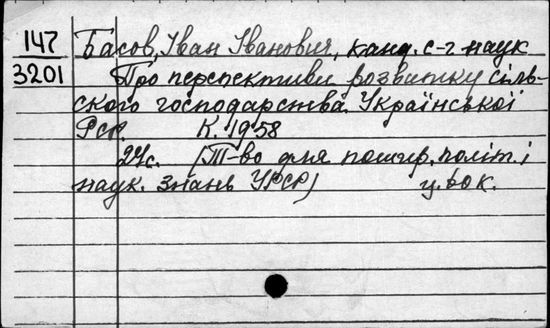 147
3201
Басов, Іван Іванович, канд. с-г наук
Про перспективи розвитку сіль-
ського господарства Української
Рср. К. 1958
24с. (Т-во для пошир. політ. і
наук. знань УРСР) ц. 60 к.